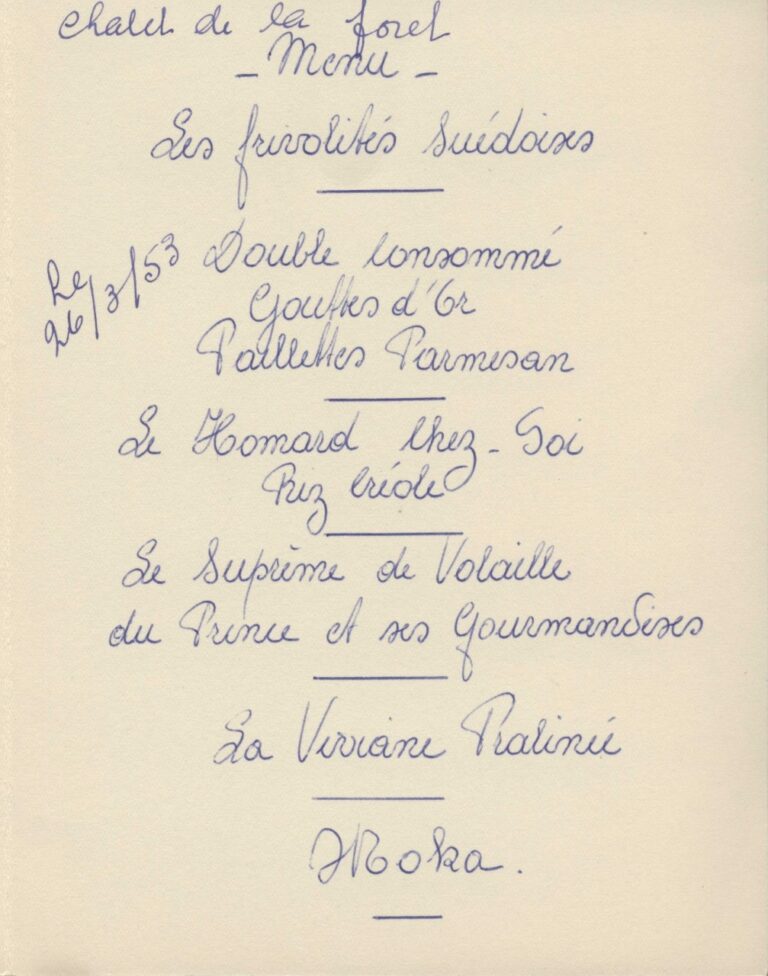 Chalet de la foret
- Menu -
Les frivolités Suédoises
Le
26/3/53
Double Consommé
Gouttes d'Or
Paillettes Parmesan
Le Homard Chez-Soi
Riz Créole
Le Suprême de Volaille
du Prince et ses Gourmandises
La Viviane Pralinée
Moka.